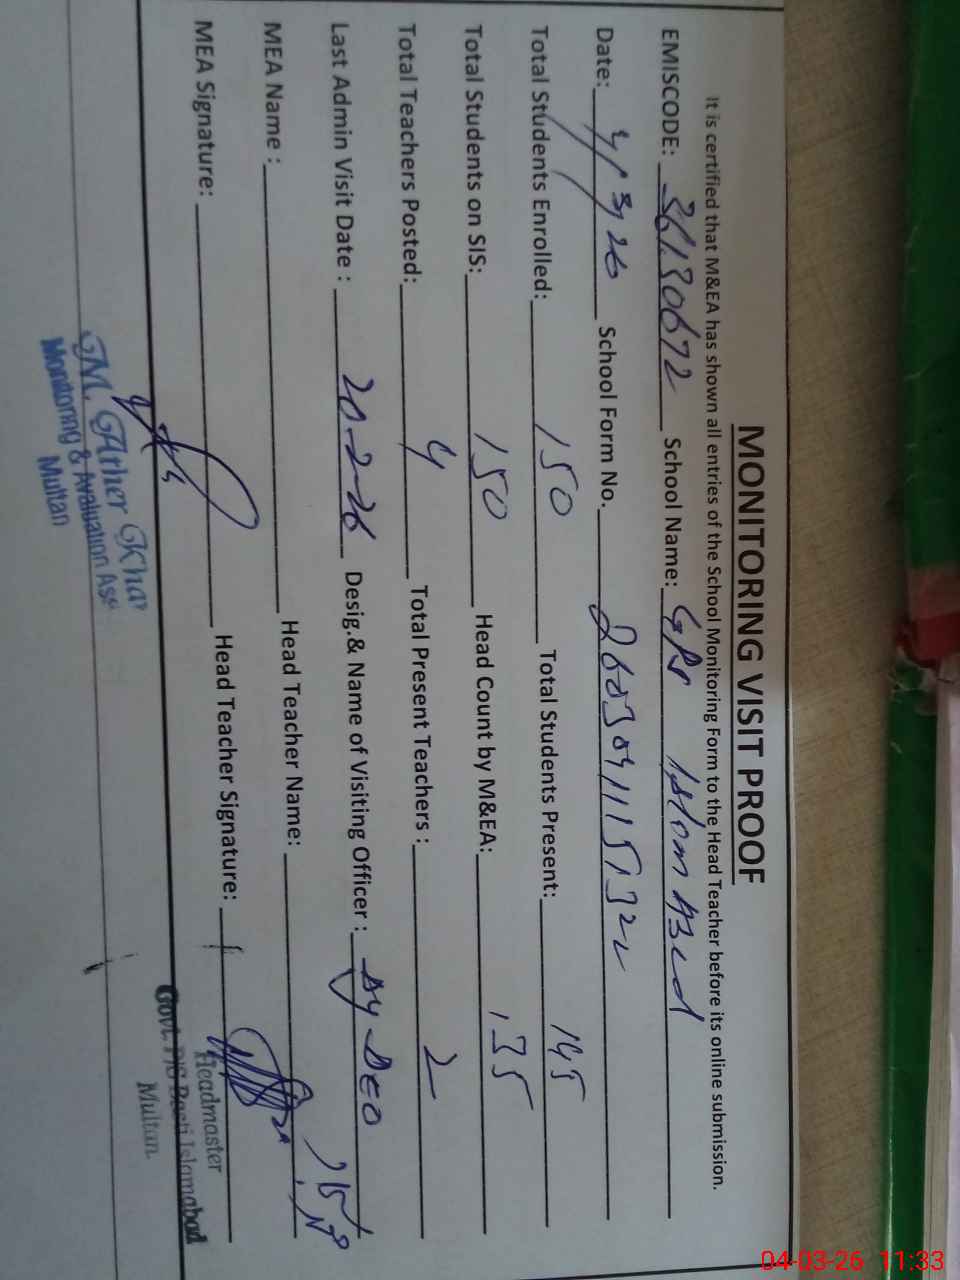 MONITORING VISIT PROOF
It is certified that M&EA has shown all entries of the School Monitoring Form to the Head Teacher before its online submission.
EMISCODE: 36130672 School Name: GPS
Date: 4/3/26 School Form No.
Total Students Enrolled: 150 Total Students Present: 145
Total Students on SIS: 150 Head Count by M&EA: 135
Total Teachers Posted: 4 Total Present Teachers : 2
Last Admin Visit Date : 20-2-26 Desig.& Name of Visiting Officer : Dy DEO
MEA Name : Head Teacher Name:
MEA Signature: Head Teacher Signature:
M. Ather Kha
Monitoring & Avaluation Ass
Multan
Headmaster
Govt. P/S Basti Islamabad
Multan.
04-03-26 11:33